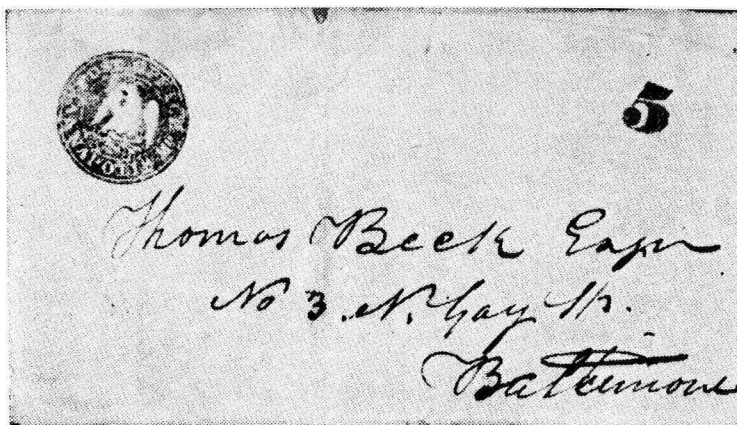 5
Thomas Beck Esqr
No 3. N. Gay St.
Baltimore